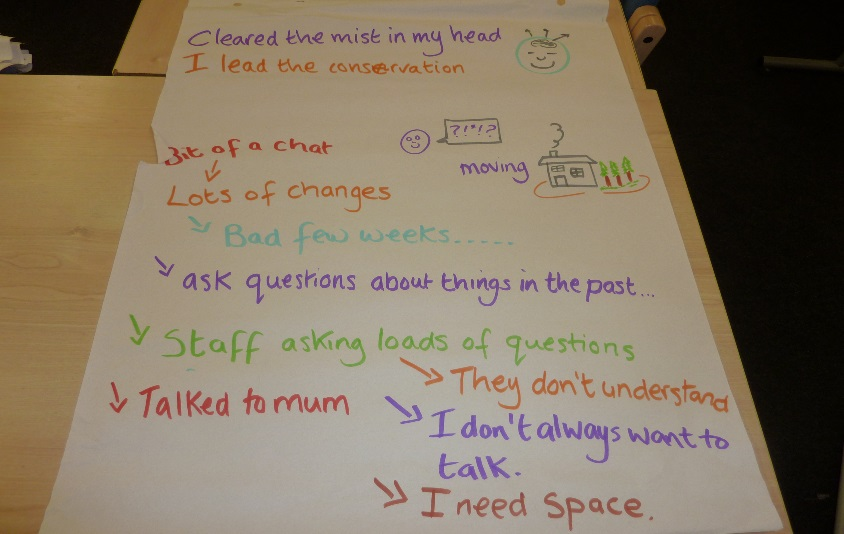 Cleared the mist in my head
I lead the conservation
?!*!?
Bit of a chat
moving
Lots of changes
Bad few weeks......
ask questions about things in the past...
Staff asking loads of questions
They don't understand
Talked to mum
I don't always want to
talk.
I need space.